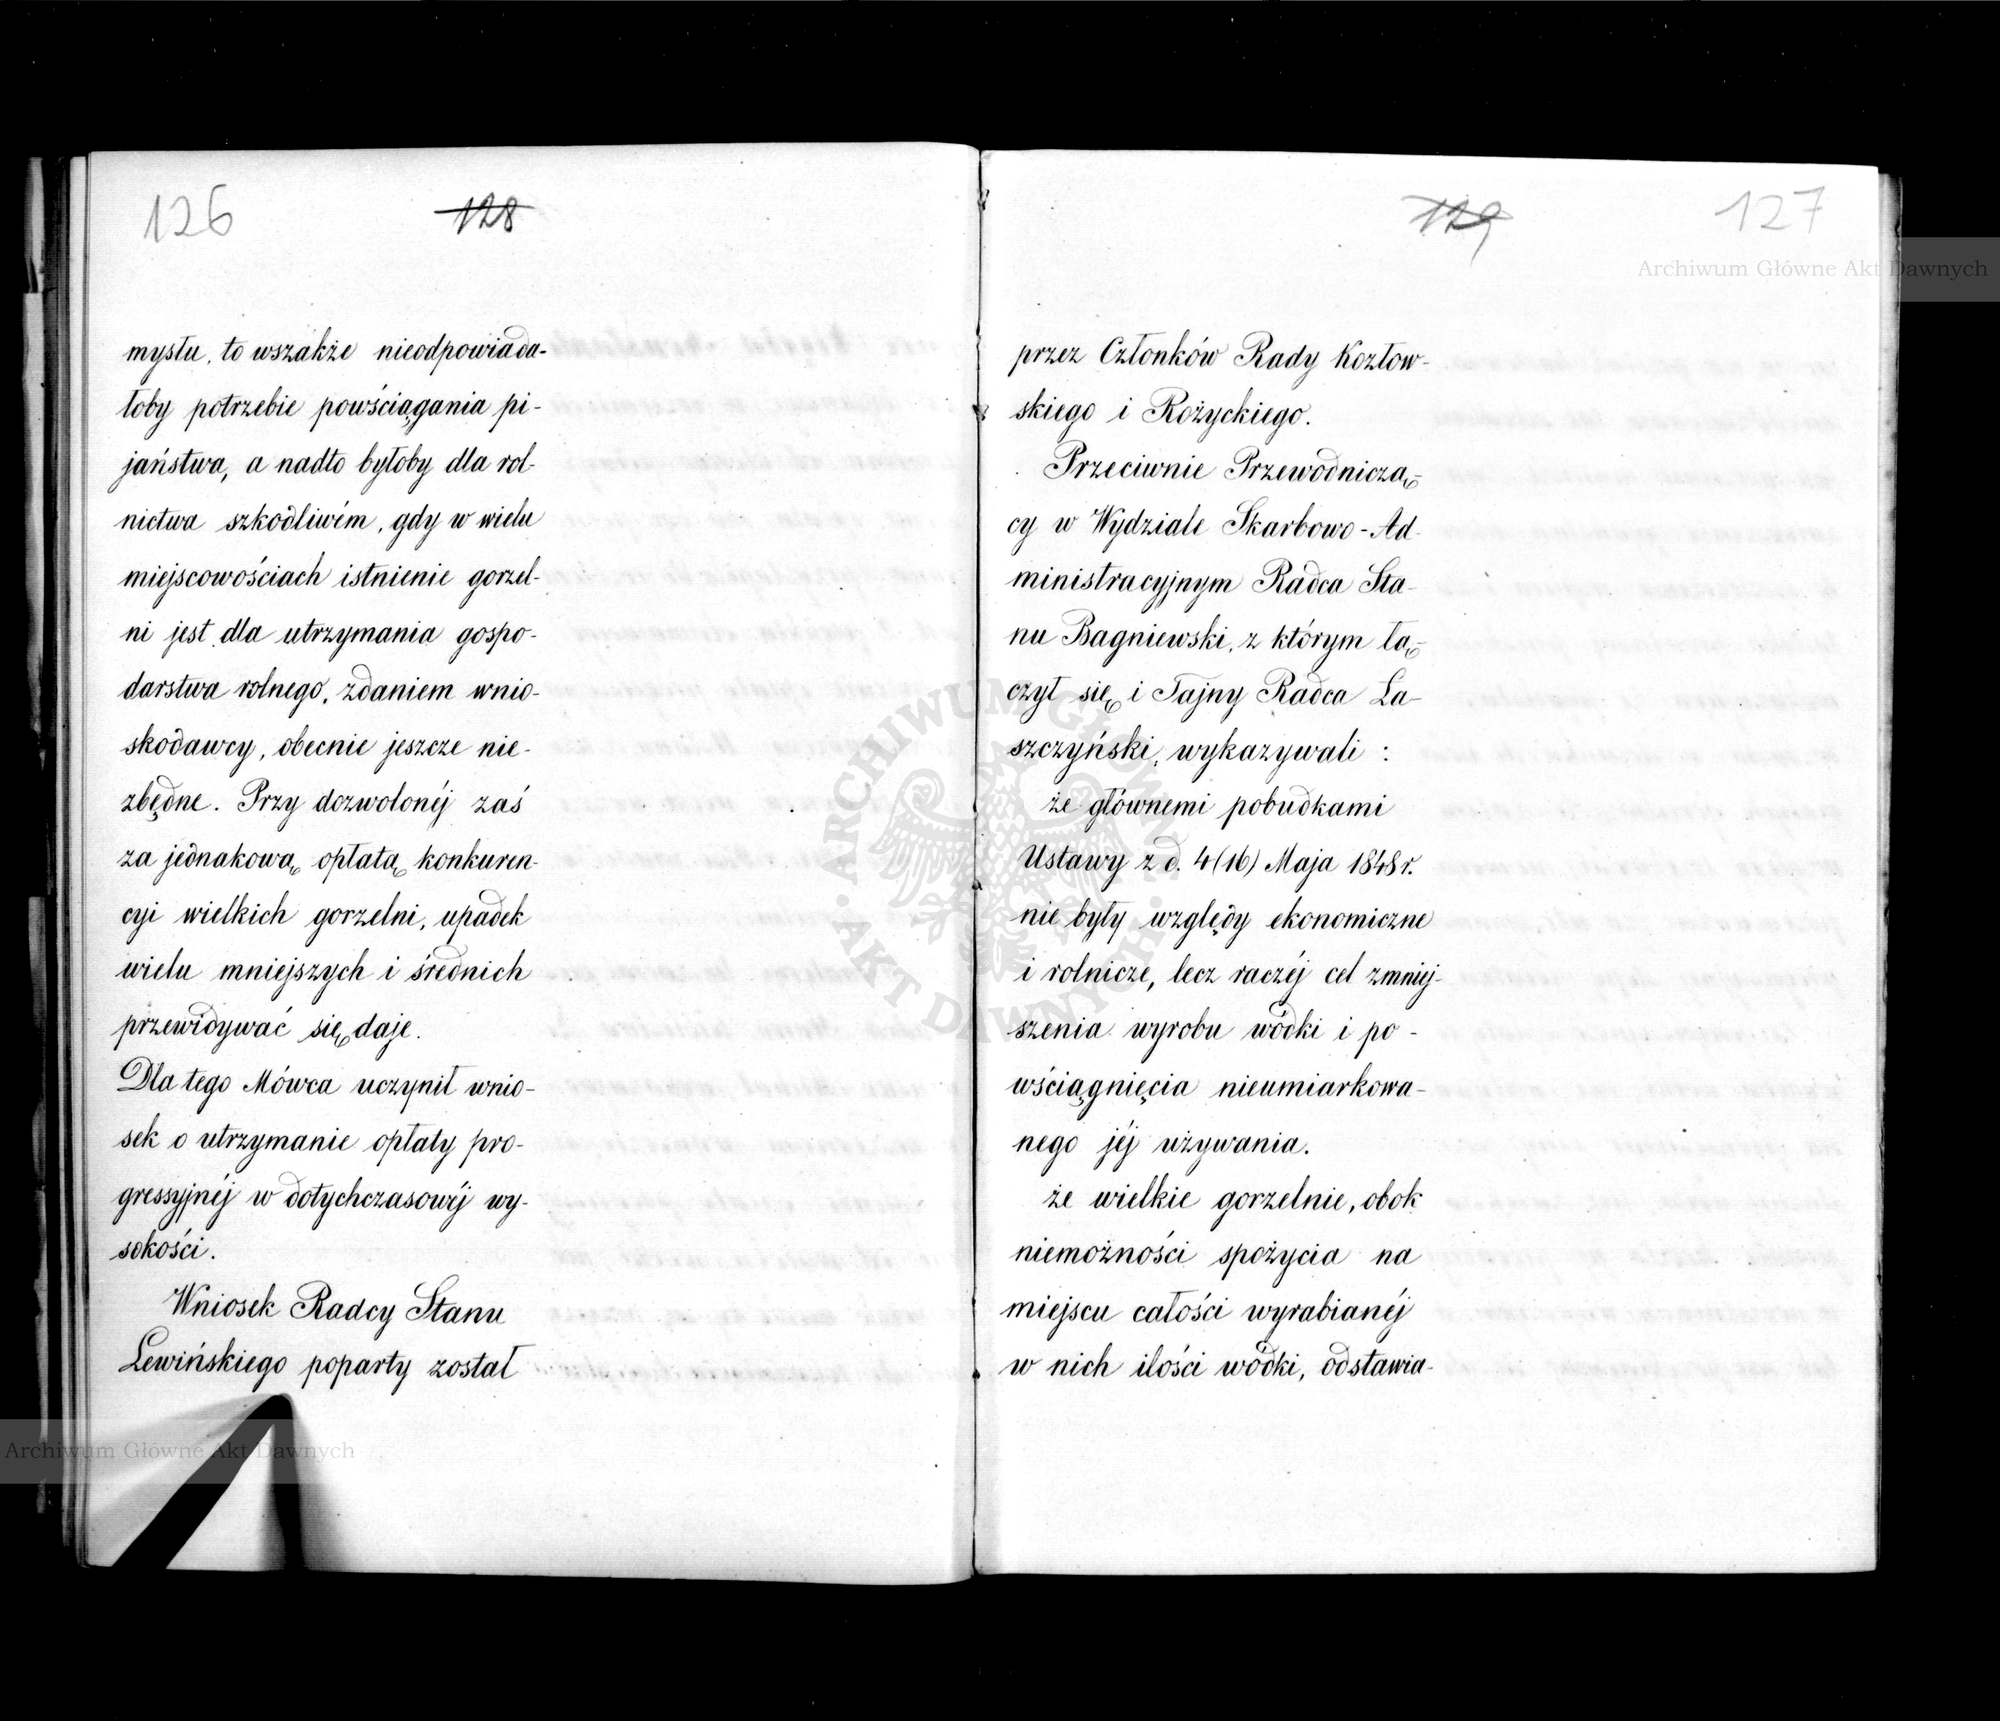 126
128
mysłu, to wszakże nieodpowiada-
łoby potrzebie powściągania pi-
jaństwa, a nadto byłoby dla rol-
nictwa szkodliwém, gdy w wielu
miejscowościach istnienie gorzel-
ni jest dla utrzymania gospo-
darstwa rolnego, zdaniem wnio-
skodawcy, obecnie jeszcze nie-
zbędne. Przy dozwolonéj zaś
za jednakową opłatą konkuren-
cyi wielkich gorzelni, upadek
wielu mniejszych i średnich
przewidywać się daje.
Dla tego Mówca uczynił wnio-
sek o utrzymanie opłaty pro-
gressyjnéj w dotychczasowéj wy-
sokości.
Wniosek Radcy Stanu
Lewińskiego poparty został
129
127
Archiwum Główne Akt Dawnych
przez Członków Rady Kozłow-
skiego i Rożyckiego.
Przeciwnie Przewodniczą-
cy w Wydziale Skarbowo-Ad-
ministracyjnym Radca Sta-
nu Bagniewski, z którym łą-
czył się i Tajny Radca Ła-
szczyński, wykazywali:
że głównemi pobudkami
Ustawy z d. 4(16) Maja 1848 r.
nie były względy ekonomiczne
i rolnicze, lecz raczéj cel zmniej-
szenia wyrobu wódki i po-
wściągnięcia nieumiarkowa-
nego jéj używania.
że wielkie gorzelnie, obok
niemożności spożycia na
miejscu całości wyrabianéj
w nich ilości wódki, odstawia-
ARCHIWUM GŁÓWNE AKT DAWNYCH
Archiwum Główne Akt Dawnych